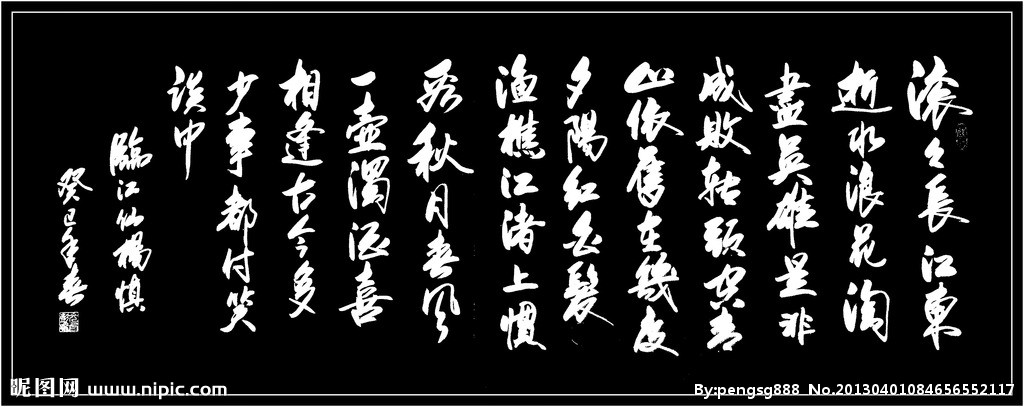 滚々長江東
逝水浪花淘
盡英雄是非
成敗转頭空青
山依舊在幾度
夕陽紅白髮
漁樵江渚上慣
看秋月春風
一壺濁酒喜
相逢古今多
少事都付笑
談中
臨江仙楊慎
癸巳年春
昵图网 www.nipic.com
By:pengsg888 No.20130401084656552117